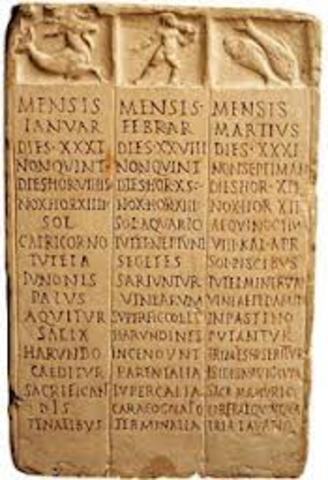 MENSIS
IANVAR
DIES·XXXI
NON QVINT
DIES HOR VIIIIS
NOX HOR XIIII
SOL
CAPRICORNO
TVTELA
IVNONIS
PALVS
AQVITVR
SALIX
HARVNDO
CAEDITVR
SACRIFICAN
DIS
PENATIBVS
MENSIS·
FEBRAR
DIES·XXVIII
NON QVINT
DIES HOR XS·
NOX HOR XIII
SOL AQVARIO
TVTEL NEPTVNI
SEGETES
SARIVNTVR
VINEARVM
SVPERFIC COLIT
HARVNDINES
INCENDVNT
PARENTALIA
LVPERCALIA
CARA COGNATIO
TERMINALIA
MENSIS
MARTIVS
DIES·XXXI
NON SEPTIMAN
DIES HOR·XII
NOX HOR XII
AEQVINOCTIVM
VIII·KAL·APR
SOL PISCIBVS
TVTEL MINERVAE
VINEAE PEDAMIN
IN PASTINO
PVTANTVR
TRIMESTR SERITVR
ISIDIS NAVIGIVM
SACR MAMVRIO
LIBERAL QVINQVA
TRIA LAVATIO